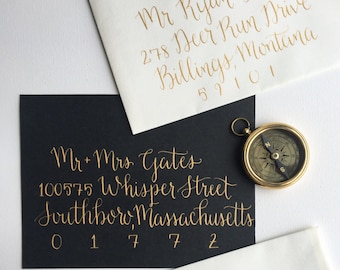 Mr Ryan
278 Deer Run Drive
Billings, Montana
59101
Mr + Mrs Gates
100575 Whisper Street
Southboro, Massachusetts
0 1 7 7 2